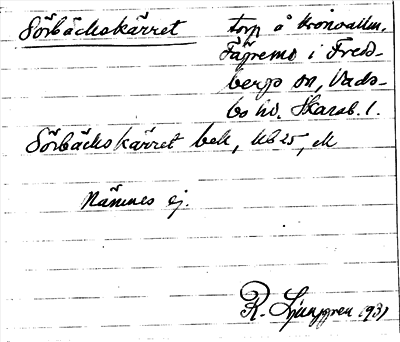 Sörbäckskärret torp å kronoallm.
Fägremo i Freds-
bergs sn, Vads-
bo hd. Skarab. l.
Sörbäckskärret bek, UB25, M
Nämnes ej.
R. Ljunggren 1931